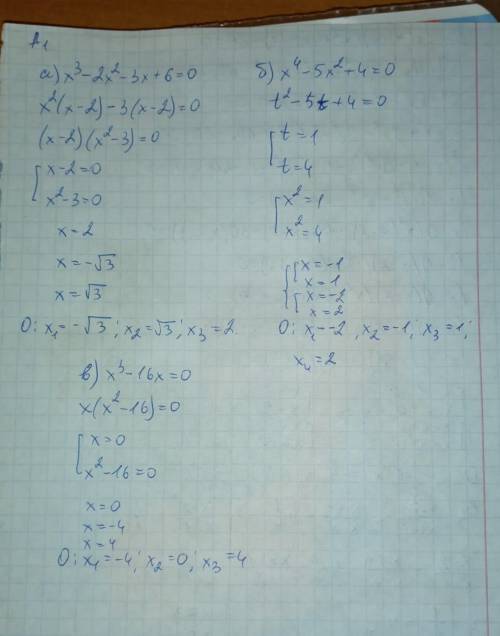 A₁
а) x³-2x²-3x+6=0
x²(x-2)-3(x-2)=0
(x-2)(x²-3)=0
[x-2=0
x²-3=0
x=2
x=-√3
x=√3
О: x₁=-√3; x₂=√3; x₃=2.
б) x⁴-5x²+4=0
t²-5t+4=0
[t=1
t=4
[x²=1
x²=4
{[x=-1
x=1
[x=-2
x=2
О: x₁=-2, x₂=-1; x₃=1;
x₄=2
в) x³-16x=0
x(x²-16)=0
[x=0
x²-16=0
x=0
x=-4
x=4
О: x₁=-4; x₂=0; x₃=4